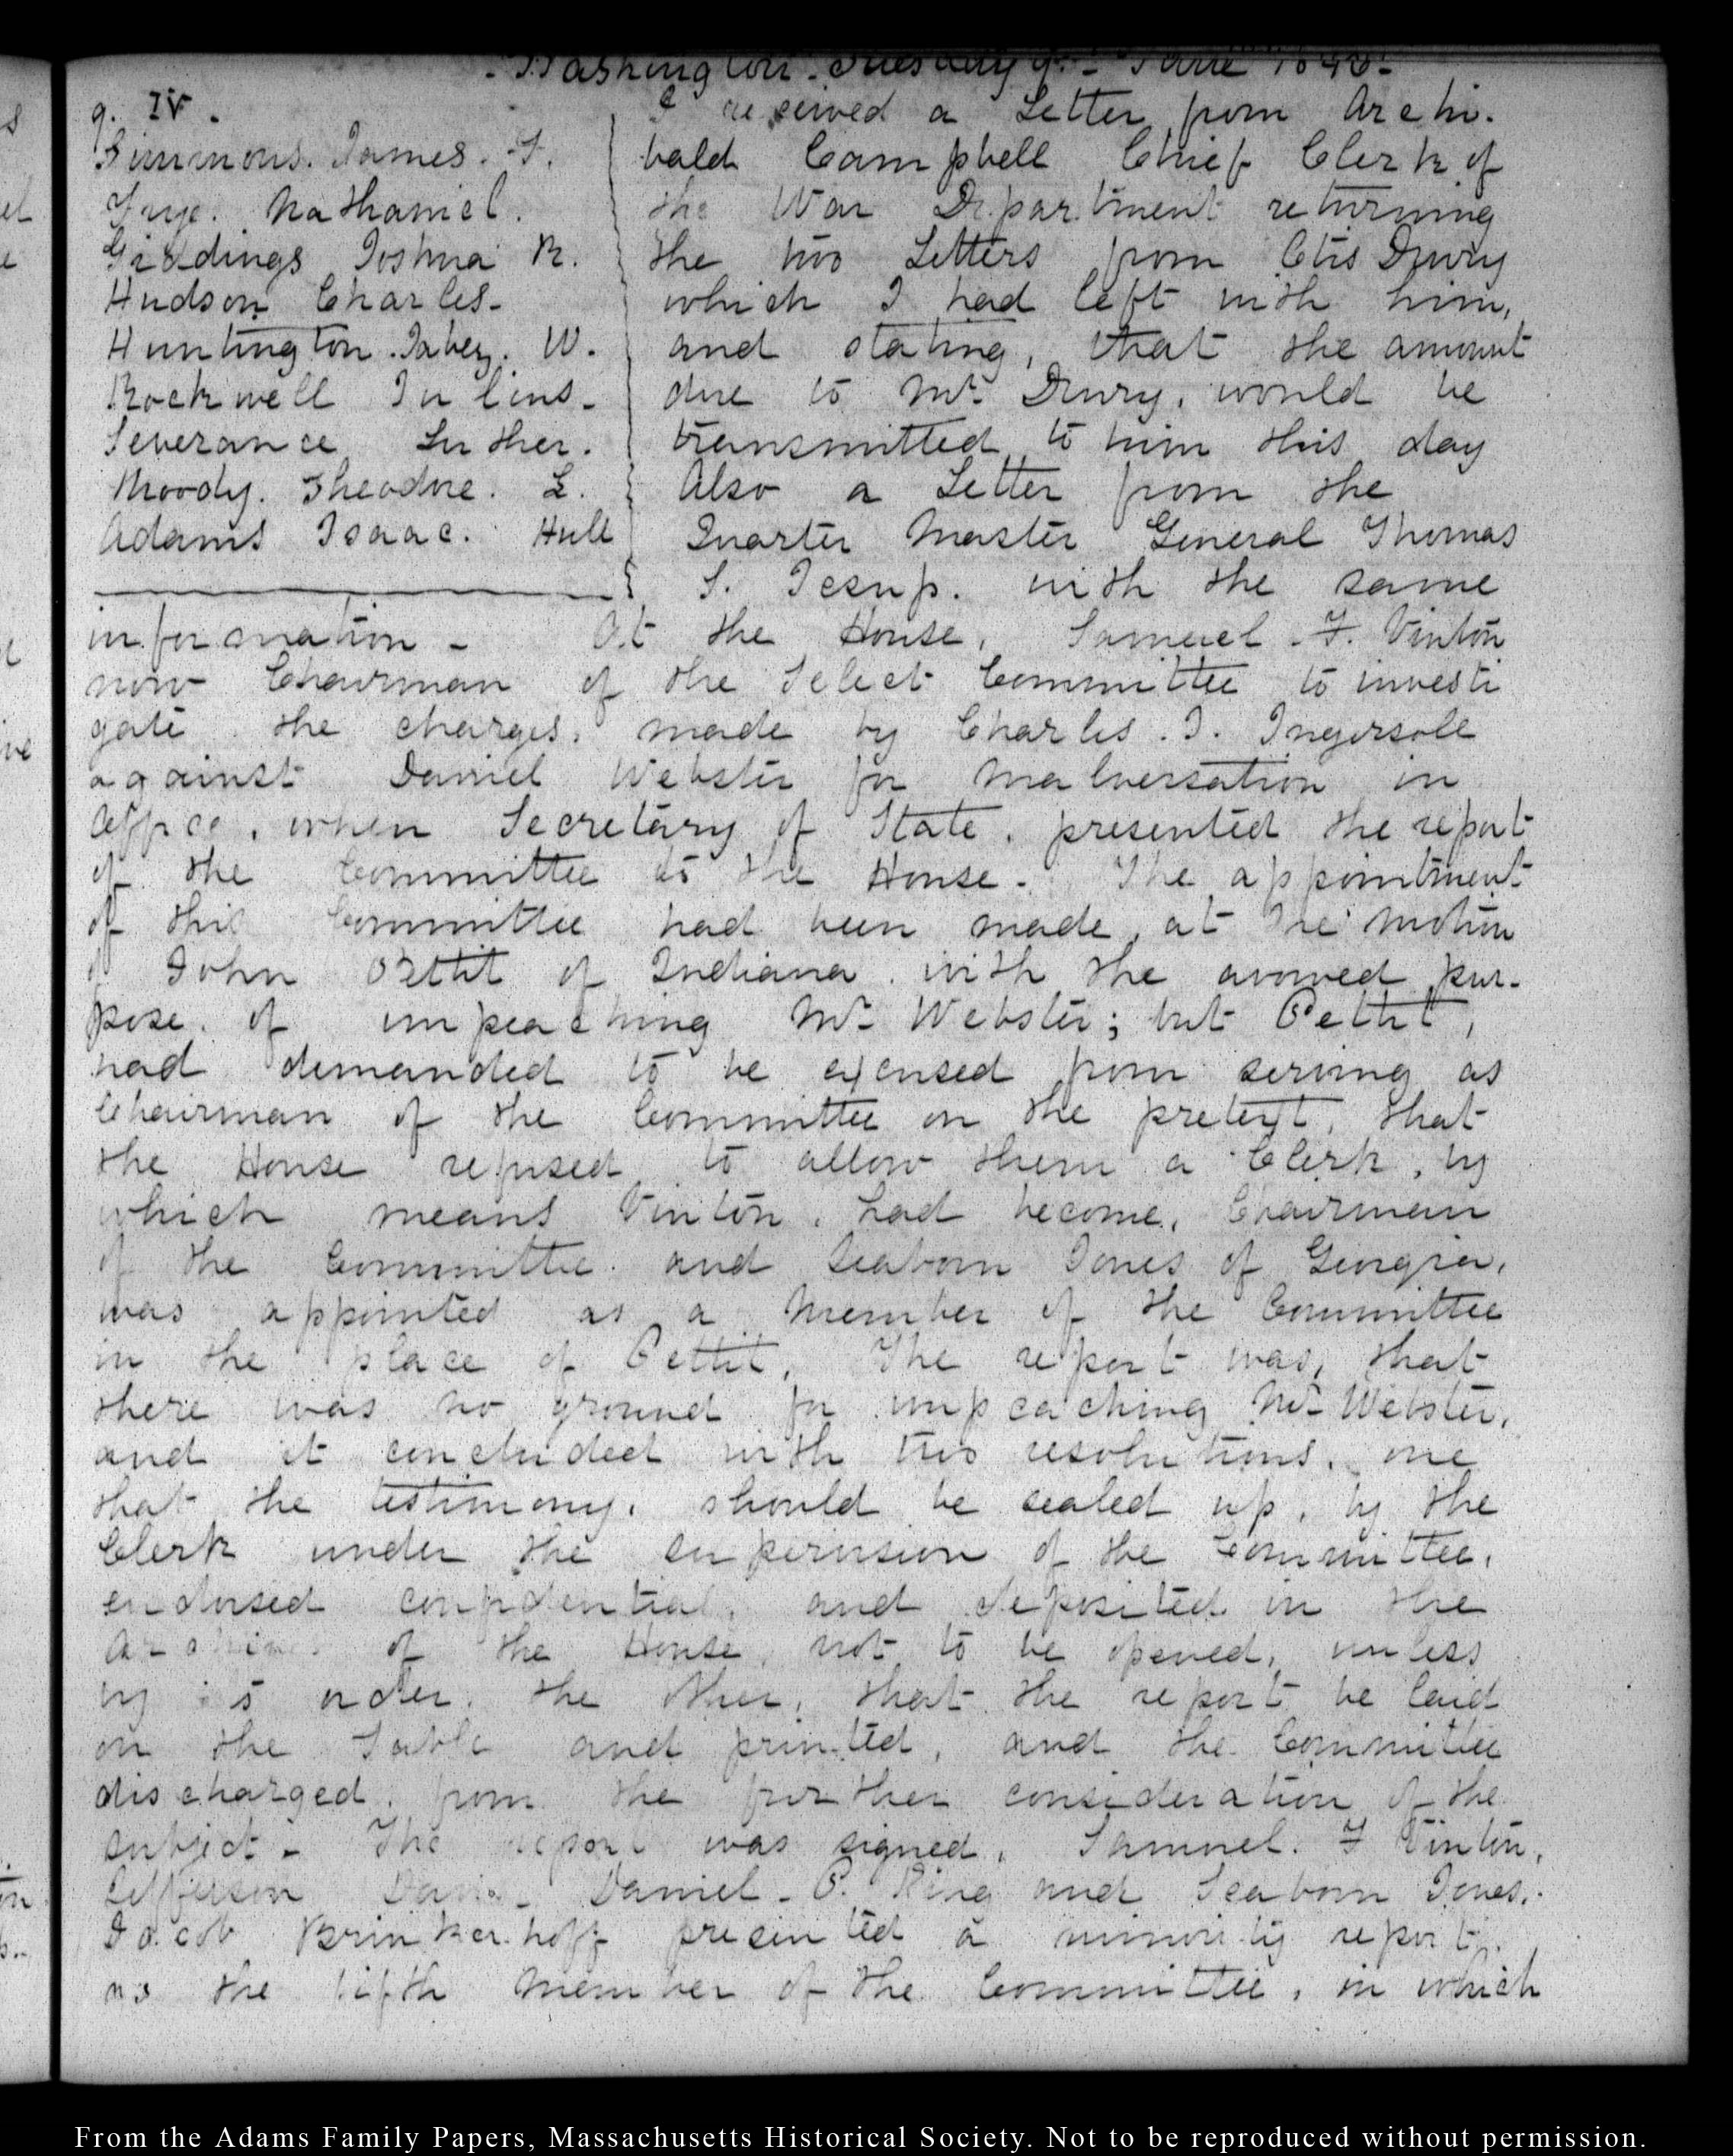 Washington. Tuesday 9. June 1846.
9. IV.
Simmons. James. F.
Frye. Nathaniel.
Giddings Joshua R.
Hudson Charles.
Huntington. Jabez. W.
Rockwell Julius.
Severance Luther.
Moody. Theodore. L.
Adams Isaac. Hull
I received a Letter from Archi.
bald Campbell Chief Clerk of
the War Department returning
the two Letters from Otis Drury
which I had left with him,
and stating, that the amount
due to Mr. Drury, would be
transmitted to him this day
Also a Letter from the
Quarter Master General Thomas
S. Jesup. with the same
information - At the House, Samuel. F. Vinton
now Chairman of the Select Committee to investi
gate the charges, made by Charles. J. Ingersoll
against Daniel Webster for malversation in
Office, when Secretary of State, presented the report
of the Committee to the House. The appointment
of this Committee had been made, at the motion
of John Pettit of Indiana with the avowed pur-
pose. of impeaching Mr. Webster; but Pettit,
had demanded to be excused from serving as
Chairman of the Committee on the pretext, that
the House refused to allow them a Clerk, by
which means Vinton, had become, Chairman
of the Committee. and Seaborn Jones of Georgia,
was appointed as a Member of the Committee
in the place of Pettit, The report was, that
there was no ground for impeaching Mr. Webster,
and it concluded with two resolutions, one
that the testimony, should be sealed up, by the
Clerk under the supervision of the Committee,
endorsed confidential, and deposited in the
Archives of the House, not to be opened, unless
by its order. the other, that the report be laid
on the Table and printed, and the Committee
discharged, from the further consideration of the
subject - The report was signed, Samuel. F Vinton,
Jefferson Davis - Daniel - P. King and Seaborn Jones.
Jacob Brinkerhoff presented a minority report,
as the fifth Member of the Committee, in which
From the Adams Family Papers, Massachusetts Historical Society. Not to be reproduced without permission.